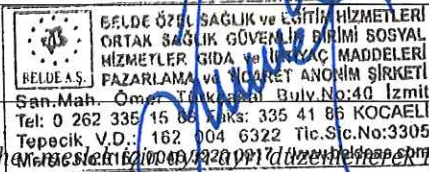 BELDE A.Ş.
BELDE ÖZEL SAĞLIK ve EĞİTİM HİZMETLERİ
ORTAK SAĞLIK GÜVENLİK BİRİMİ SOSYAL
HİZMETLER GIDA ve İHTİYAÇ MADDELERİ
PAZARLAMA ve TİCARET ANONİM ŞİRKETİ
San.Mah. Ömer Bulv.No:40 İzmit
Tel: 0 262 335 15 Faks: 335 41 86 KOCAELİ
Tepecik V.D. 162 004 6322 Tic.Sic.No:3305
ayrı düzenlenerek